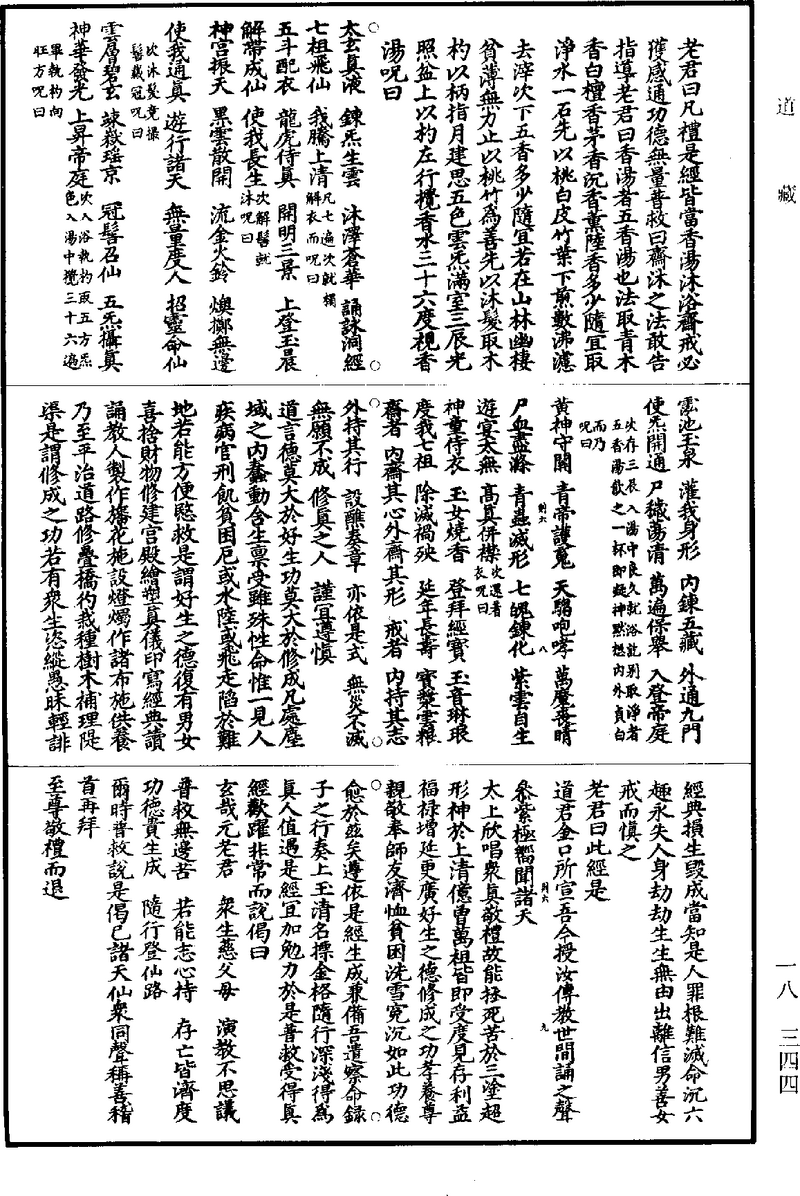 道藏
一八 三四四
老君曰凡禮是經皆當香湯沐浴齋戒必
獲感通功德無量普救曰齋沐之法敢告
指導老君曰香湯者五香湯也法取青木
香白檀香茅香沉香薰陸香多少隨宜取
淨水一石先以桃白皮竹葉下煎數沸濾
去滓次下五香多少隨宜若在山林幽棲
貧薄無力止以桃竹為善先以沐髮取木
杓以柄指月建思五色雲炁滿室三辰光
照盆上以杓左行攪香水三十六度視香
湯呪曰
太玄真液 鍊炁生雲 沐澤蒼華 誦詠洞經
七祖飛仙 我騰上清凡七遍次就櫈解衣而呪曰
五斗配衣 龍虎侍真 開明三景 上登玉晨
解帶成仙 使我長生次解髻就沐呪曰
神宮振天 黑雲散開 流金火鈴 煥擲無邊
使我通真 遊行諸天 無量度人 招靈命仙
次沐髮竟攝髻戴冠呪曰
雲層碧玄 竦嶽瑶京 冠髻召仙 五炁攝真
神華發光 上昇帝庭次入浴執杓取五方炁色入湯中攪三十六遍
畢執杓向旺方呪曰
靈池玉泉 灌我身形 內鍊五藏 外通九門
使炁開通 尸穢蕩清 萬遍保舉 入登帝庭
次存三辰入湯中良久就浴訖别取淨者五香湯飲之一杯即凝神黙想內外貞白
而乃呪曰
黃神守闕 青帝護䰟 天騶咆哮 萬魔喪睛
尸血盡滌 青蟲滅形 七魄鍊化 紫雲自生
遊宴太無 高真併襟次還著衣呪曰
神童侍衣 玉女燒香 登拜經寶 玉音琳琅
度我七祖 除滅禍殃 延年長壽 寳漿雲粮
齋者內齋其心外齋其形 戒者內持其志
外持其行 設醮奏章 亦依是式 無災不滅
無願不成 修真之人 謹宜遵慎
道言德莫大於好生功莫大於修成凡處塵
域之內蠢動含生禀受雖殊性命惟一見人
疾病官刑飢貧困厄或水陸或飛走陷於難
地若能方便愍救是謂好生之德復有男女
喜捨財物修建宮殿繪塑真儀印寫經典讀
誦教人製作旛花施設燈燭作諸布施供養
乃至平治道路修疊橋彴栽種樹木補理隄
渠是謂修成之功若有衆生恣縱愚昧輕誹
經典損生毀成當知是人罪根難滅命沉六
趣永失人身劫劫生生無由出離信男善女
戒而慎之
老君曰此經是
道君金口所宣吾今授汝傳教世間誦之聲
叅紫極嚮聞諸天
太上欣唱衆真敬禮故能拯死苦於三塗超
形神於上清億曾萬祖皆即受度見存利益
福禄增延更廣好生之德修成之功孝養尊
親敬奉師友濟恤貧困洗雪冤沉如此功德
愈於兹矣遵依是經生成兼備吾遣察命錄
子之行奏上玉清名標金格隨行深淺得為
真人值遇是經宜加勉力於是普救受得真
經歡躍非常而說偈曰
玄哉元老君 衆生慈父母 演教不思議
普救無邊苦 若能志心持 存亡皆濟度
功德貴生成 隨行登仙路
爾時普救說是偈已諸天仙衆同聲稱善稽
首再拜
至尊敬禮而退